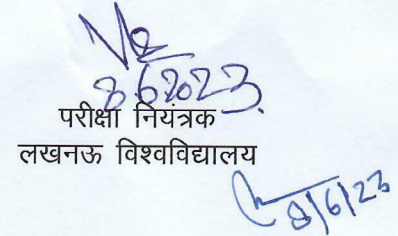 8.6.2023.
परीक्षा नियंत्रक
लखनऊ विश्वविद्यालय
8/6/23